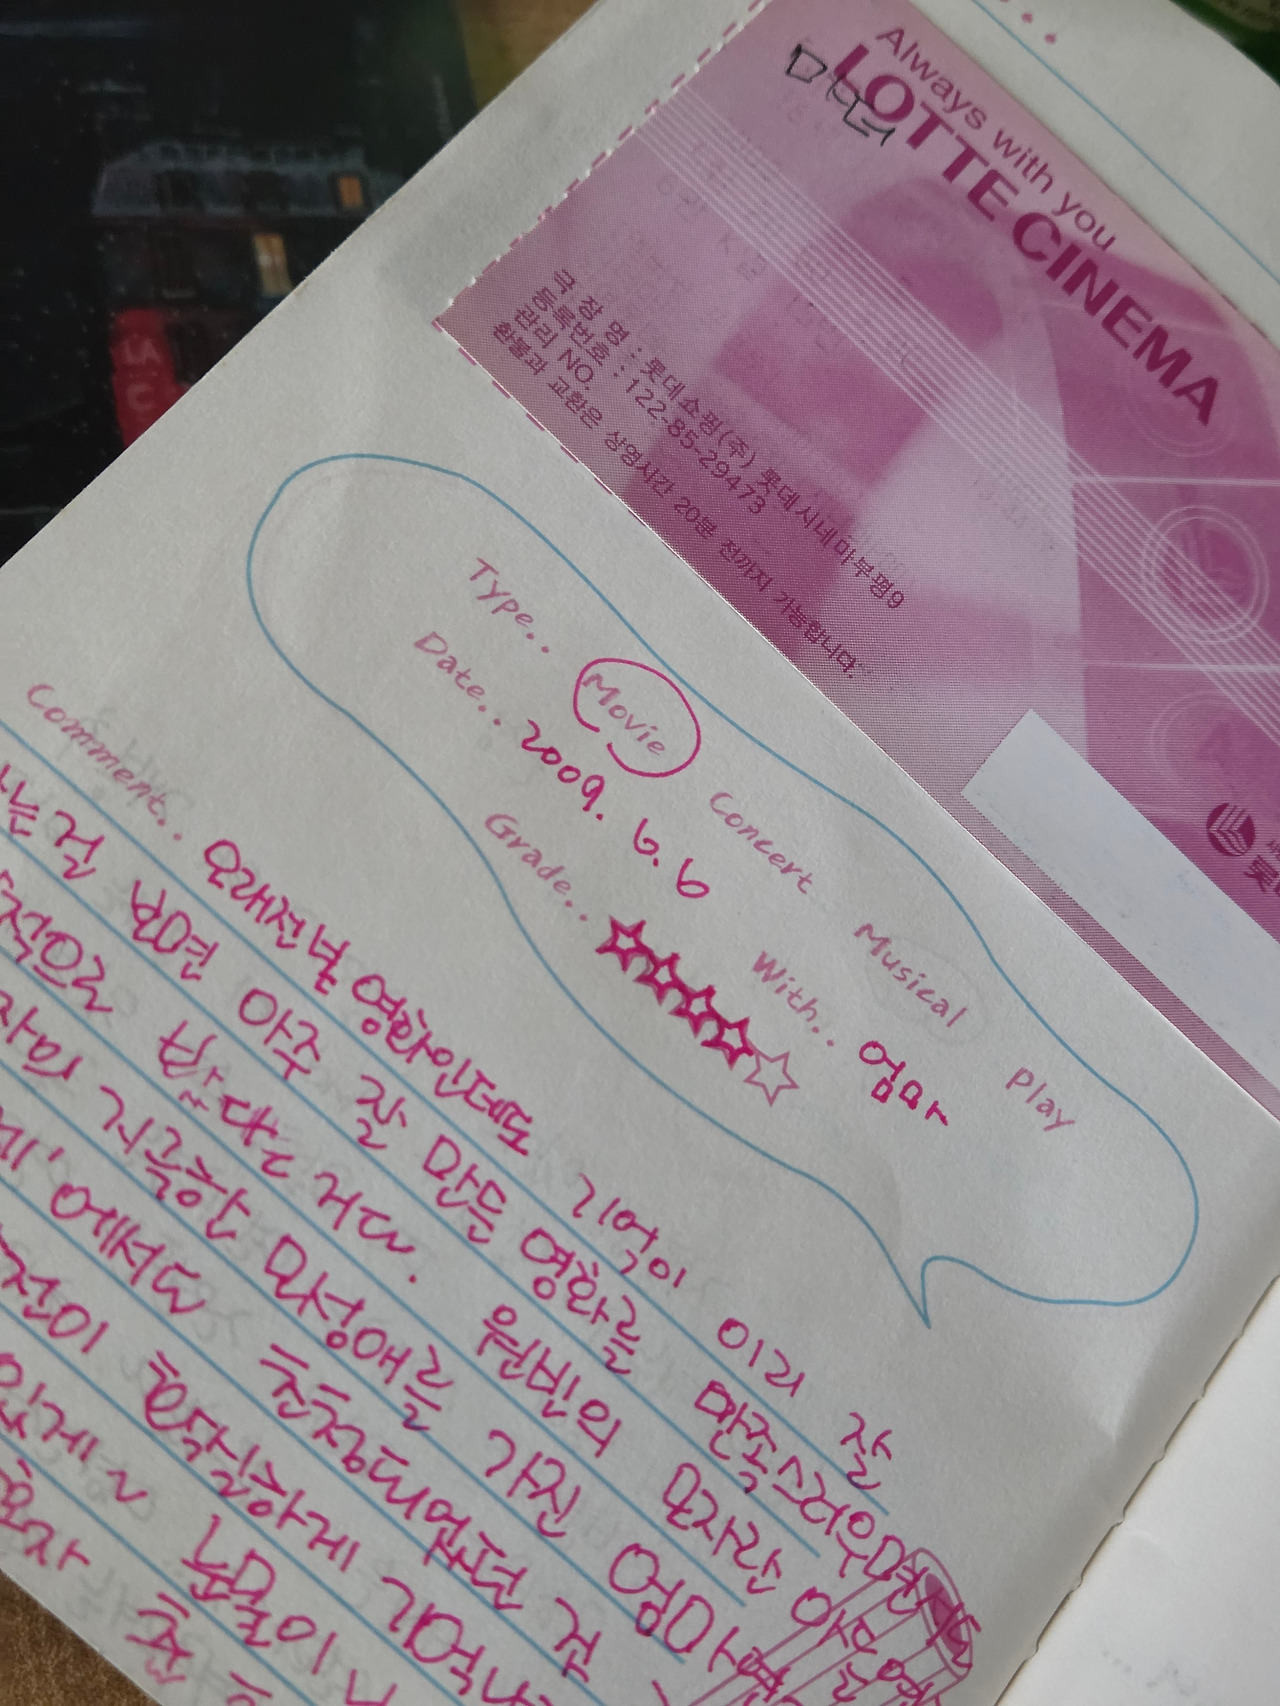 Always with you
LOTTE CINEMA
마더
극 장 명 : 롯데쇼핑(주) 롯데시네마부평9
등록번호 : 122-85-29473
관리 NO.
환불과 교환은 상영시간 20분 전까지 가능합니다.
Type.. Movie Concert Musical Play
Date.. 2009. 6. 6 With.. 엄마
Grade.. ★★★★☆
Comment.. 오래전 본 영화인데도 기억이 이리 잘
나는걸 보면 아주 잘 만든 영화를 만족스러우면서도
적으로 봤다는 거다. 원빈의 모자란 아들
자의 거룩한 모성애를 가진 엄마
에서도 초청되었던 것
전이 확실하게 기억
있게~ 눈물이
혼자 춤